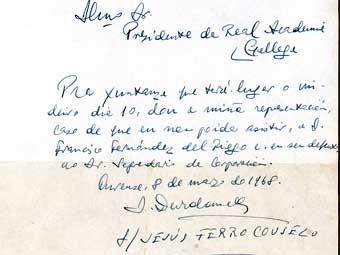 Ilmo Sr.
Presidente da Real Academia
Gallega
Pra xuntanza que terá lugar o vin-
deiro día 10, dou a miña representación,
caso de que eu non poida asistir, a D.
Francisco Fernández del Riego e, en seu defecto,
ao Sr. Secretario da Corporación.
Ourense, 8 de marzo do 1968.
f/ JESÚS FERRO COUSELO